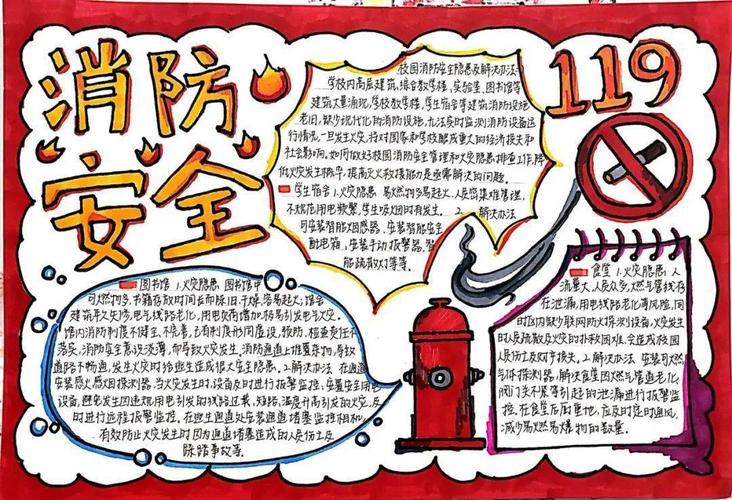 消防
安全
119
校园消防安全隐患及解决办法:
学校内高层建筑,综合教学楼,实验室,图书馆等
建筑大量涌现,学校教学楼,学生宿舍等建筑消防设施
老旧,缺少现代化的消防设施,无法及时监测消防设备运
行情况,一旦发生火灾,将对国家和学校酿成重大的经济损失和
社会影响,如何做好校园消防安全管理和火灾隐患排查工作,降
低火灾发生概率,提高灭火救援能力是亟需解决的问题。
学生宿舍 1.火灾隐患 易燃物多易起火,人员密集难管理,
不规范用电频繁,学生吸烟时有发生。2. 解决办法
可安装智能烟感器,安装智能安全
配电箱,安装手动报警器,智
能疏散灯等等。
图书馆 1.火灾隐患 图书馆中
可燃物多,书籍存放时间长而陈旧,干燥,容易起火;馆舍
建筑年久失修,电气线路老化,用电负荷增加,极易引发电气火灾。
馆内消防制度不健全,不完善,占有制度形同虚设,预防,检查责任不
落实,消防安全意识淡薄,而导致火灾发生,消防通道上堆置杂物,导致
道路不畅通,发生火灾时给逃生造成很大安全隐患。2.解决办法 在通道
安装感火感烟探测器,当火灾发生时,设备及时进行报警监控,安置安全用电
设备,避免发生因违规用电引发的线路过载,短路,温度升高引发的火灾,及
时进行远程报警监控。在逃生通道处安装通道堵塞监控相机,
有效防止火灾发生时因为通道堵塞造成的人员伤亡及
踩踏事故等。
食堂 1.火灾隐患,人
流量大,人员众多,燃气管线存
在泄漏,用电线路老化等风险,同
时区内缺少联网防火探测设备,火灾发生
时人员疏散及火灾的扑救困难,会造成校园
人员伤亡及财产损失。2.解决办法 安装可燃
气体探测器,解决食堂因燃气管道老化,
阀门关不紧等引起的泄漏进行报警监
控,在食堂后厨重地,应及时定时通风,
减少易燃易爆物的数量。